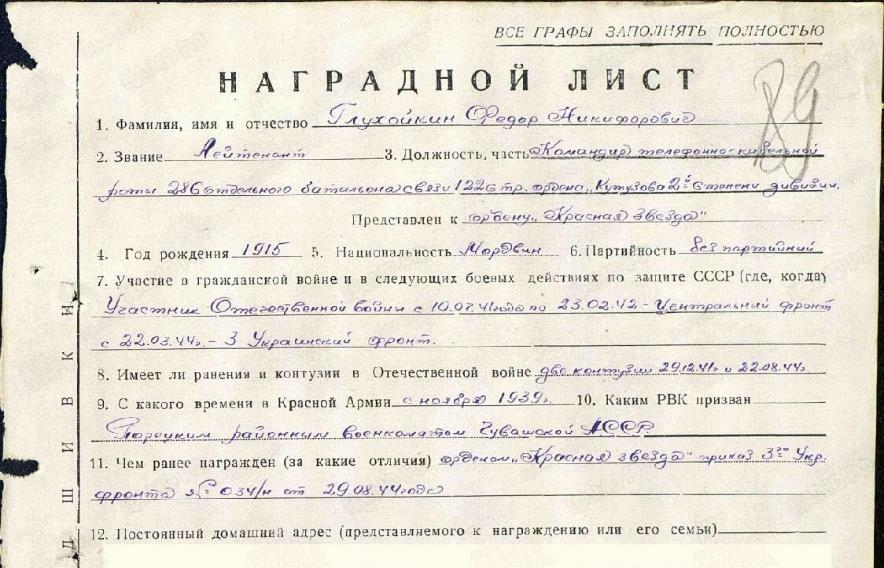 ВСЕ ГРАФЫ ЗАПОЛНЯТЬ ПОЛНОСТЬЮ
НАГРАДНОЙ ЛИСТ
89
1. Фамилия, имя и отчество Глухойкин Федор Никифорович
2. Звание Лейтенант 3. Должность, часть Командир телефонно-кабельной
роты 286 отдельного батальона связи 122 стр. ордена „Кутузова 2й степени дивизии.
Представлен к ордену „Красная звезда"
4. Год рождения 1915 5. Национальность Мордвин 6. Партийность без партийний
7. Участие в гражданской войне и в следующих боевых действиях по защите СССР (где, когда)
Участник Отечественной войны с 10.07.41 года по 23.02.42 - Центральный фронт
с 22.03.44г. - 3 Украинский фронт.
8. Имеет ли ранения и контузии в Отечественной войне две контузии 29.12.41г и 22.08.44г
9. С какого времени в Красной Армии с ноября 1939г. 10. Каким РВК призван
Порецким районным военкоматом Чувашской АССР
11. Чем ранее награжден (за какие отличия) орденом „Красная звезда" приказ 3го Укр.
фронта № 034/н от 29.08.44 года
12. Постоянный домашний адрес (представляемого к награждению или его семьи)
Д ШИВКИ